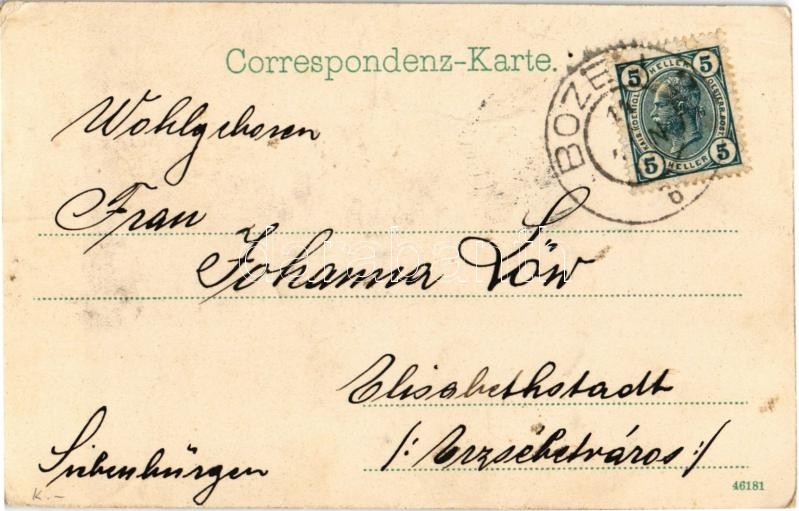 Correspondenz-Karte.
BOZEN
5 HELLER 5
KAIS. KOENIGL. OESTERR. POST
5 HELLER 5
b
Wohlgeboren
Frau
Johanna Löw
darabanth
Elisabethstadt
/: Erzsébetváros :/
Siebenbürgen
K.-
46181